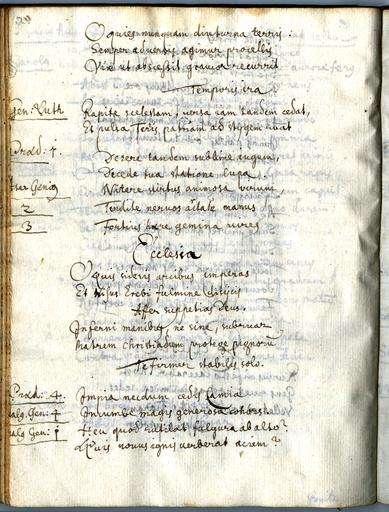 O quies nunquam diuturna terris:
Semper adversis agimur procellis
Vix ut abscessit gravior recurrit
Temporis ira
Gen: Luth. Rapite scelestam, versa iam tandem cedat,
Et pulsa Teris patriam ad stygem ruat
Prod: 4. Desere tandem sublime iugum,
Alter Genius Decede tua statione lupa.
Nitere virtus animosa
2 Tendite nervos manus
3 Fortius gemina vires
Ecclesia
O quis sideris arcibus imperas
Et Erebi fulmine dijicis
Affer suppetias Deus.
Inferni manibus, ne sine, subruar
Matrem Christiadum protege pignore
Te firmer stabilis solo.
Prod: 4. Impia necdum cedis Lamia
Gen: 4 Incumbe magis generosa cohors
Gen: 1 Heu quod rutilat fulgura ab alto?
Quis novus ignis verberat aciem?